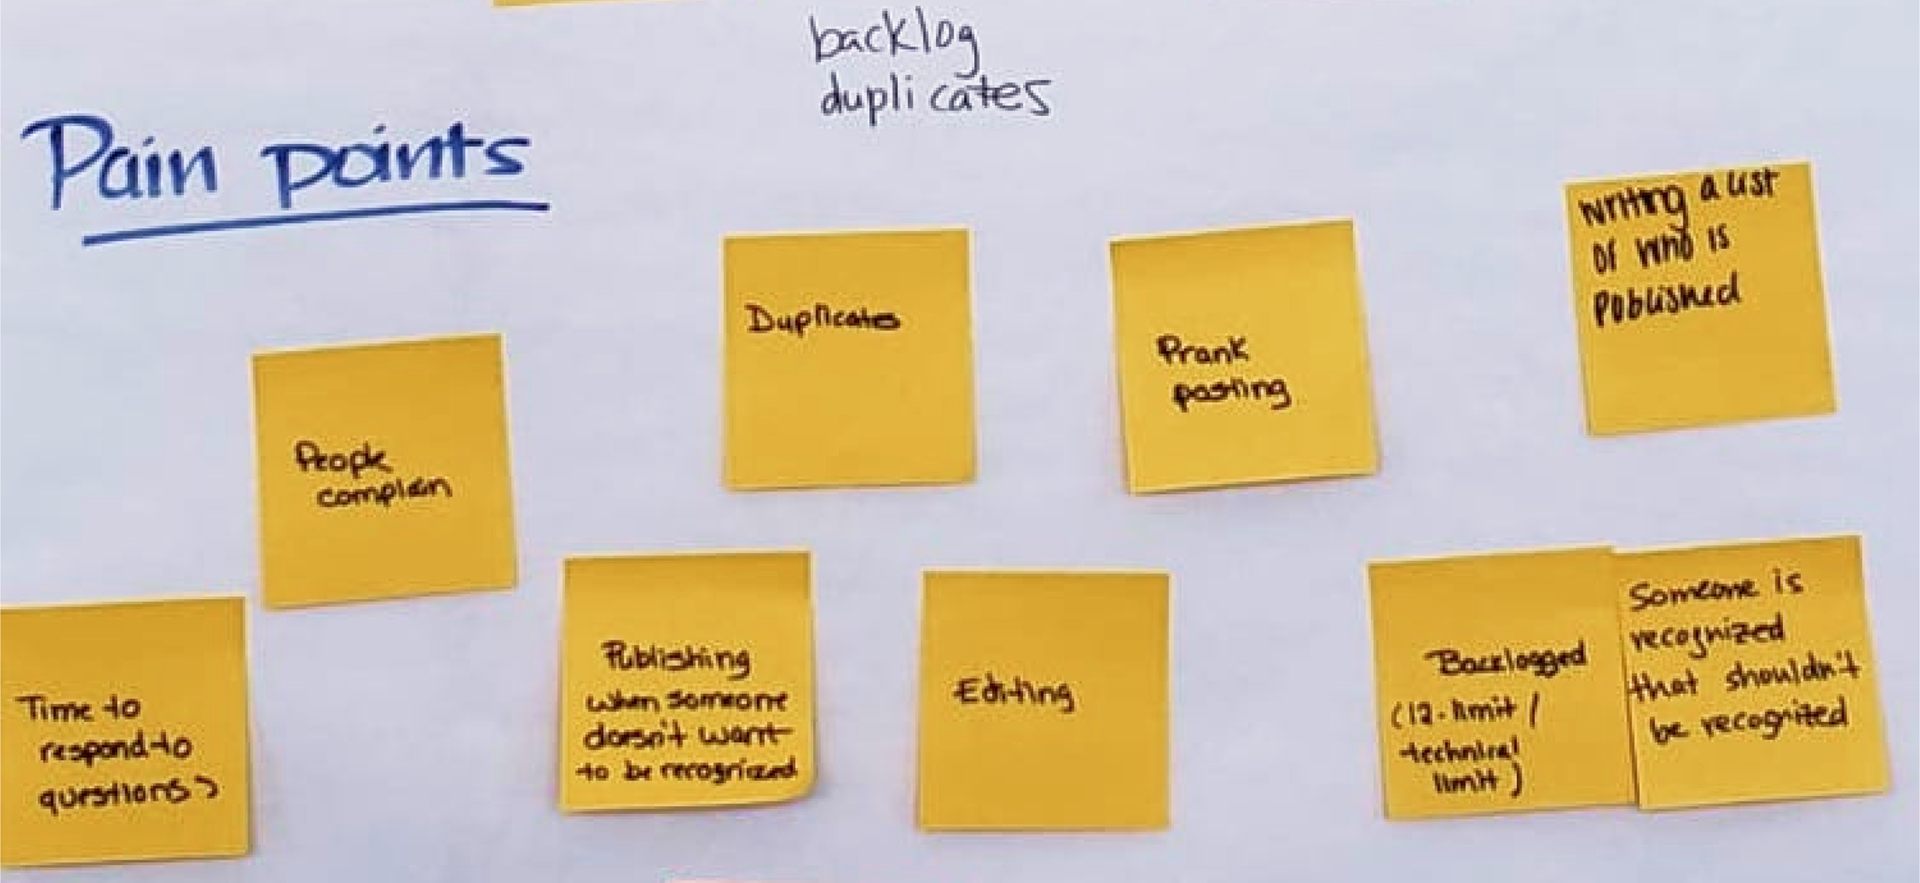 backlog
duplicates
Pain points
writing a list
of who is
published
Duplicates
Prank
posting
People
complain
Time to
respond to
questions
Publishing
when someone
doesn't want
to be recognized
Editing
Backlogged
(12-limit /
technical
limit)
Someone is
recognized
that shouldn't
be recognized